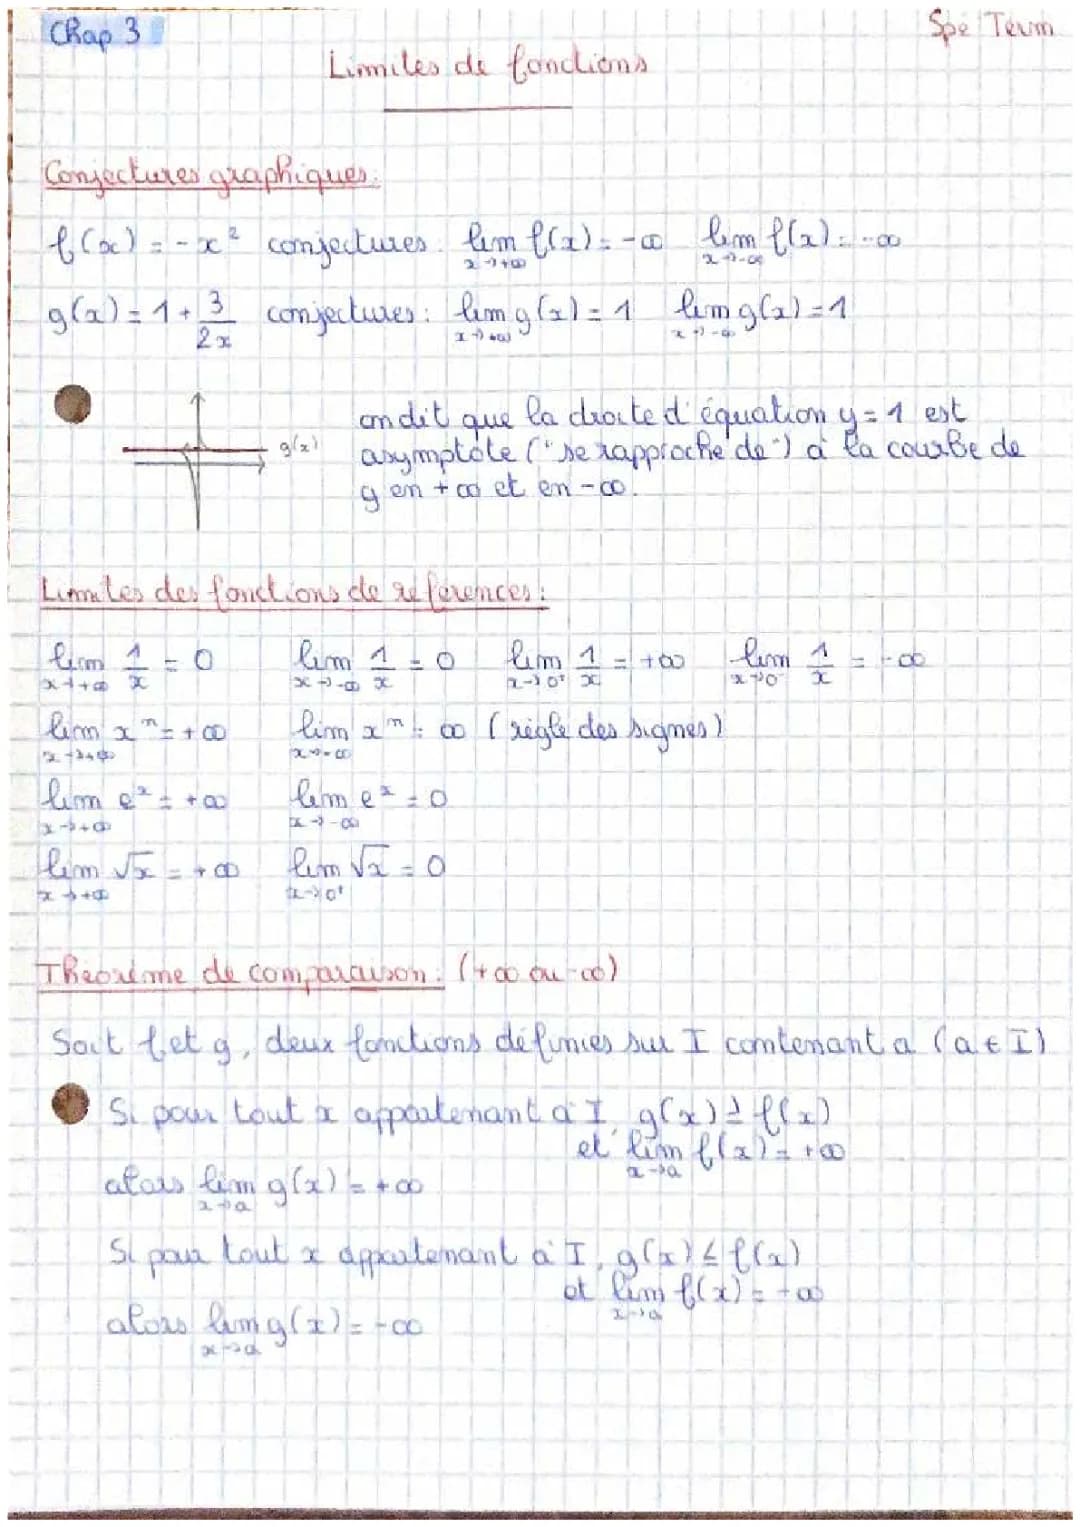 Chap 3
Spé Term
Limites de fonctions
Conjectures graphiques:
f(x) = -x² conjectures: lim x→+∞ f(x) = -∞ lim x→-∞ f(x) = -∞
g(x) = 1 + 3/2x conjectures: lim x→+∞ g(x) = 1 lim x→-∞ g(x) = 1
g(x)
on dit que la droite d'équation y = 1 est
asymptôte ("se rapproche de") à la courbe de
g en +∞ et en -∞.
Limites des fonctions de références:
lim x→+∞ 1/x = 0 lim x→-∞ 1/x = 0 lim x→0⁺ 1/x = +∞ lim x→0⁻ 1/x = -∞
lim x→+∞ xⁿ = +∞ lim x→-∞ xⁿ = ∞ (règle des signes)
lim x→+∞ eˣ = +∞ lim x→-∞ eˣ = 0
lim x→+∞ √x = +∞ lim x→0⁺ √x = 0
Théorème de comparaison: (+∞ ou -∞)
Soit f et g, deux fonctions définies sur I contenant a (a ∈ I)
Si pour tout x appartenant à I g(x) ≥ f(x)
et lim x→a f(x) = +∞
alors lim x→a g(x) = +∞
Si pour tout x appartenant à I, g(x) ≤ f(x)
et lim x→a f(x) = -∞
alors lim x→a g(x) = -∞